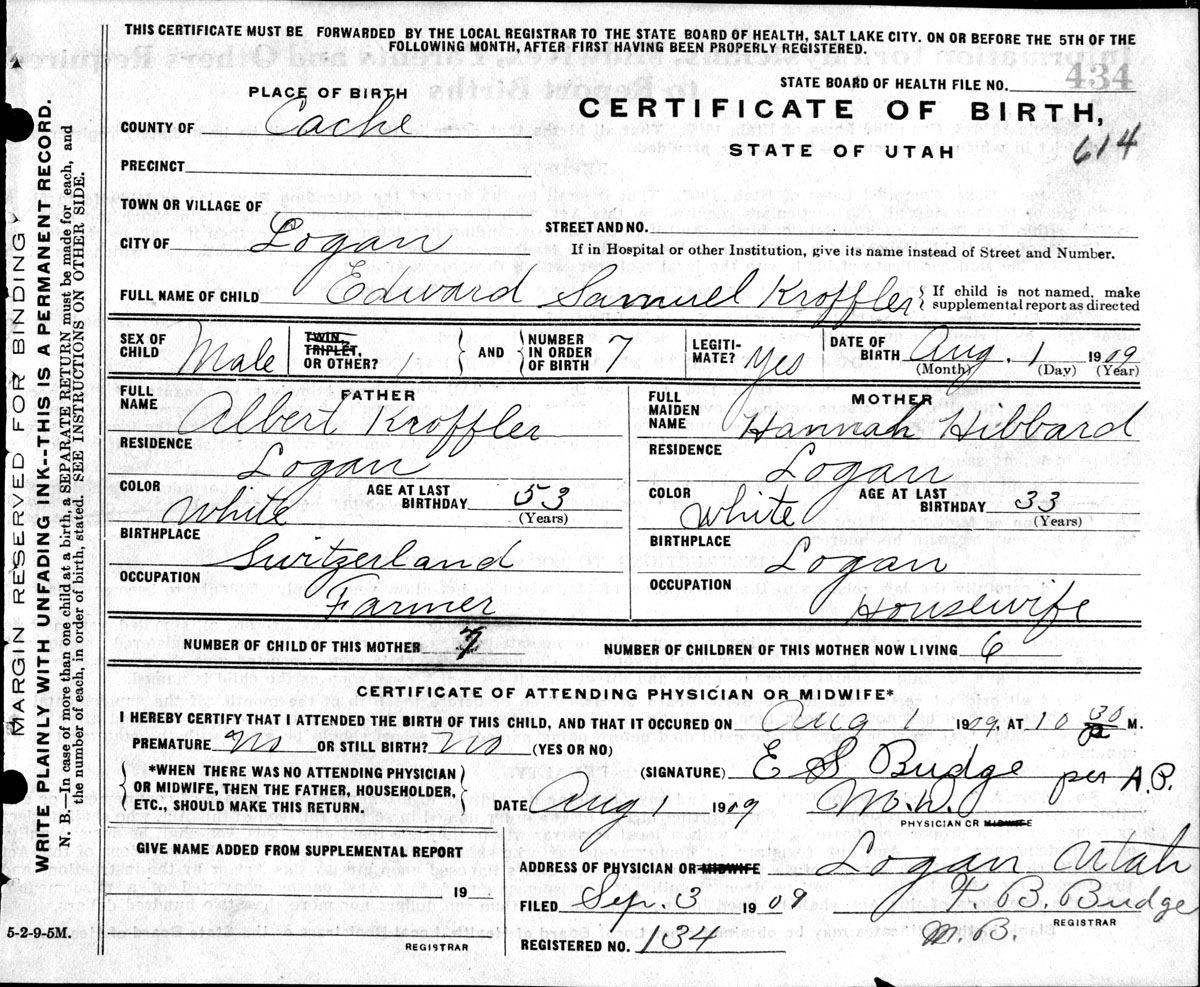 THIS CERTIFICATE MUST BE FORWARDED BY THE LOCAL REGISTRAR TO THE STATE BOARD OF HEALTH, SALT LAKE CITY. ON OR BEFORE THE 5TH OF THE
FOLLOWING MONTH, AFTER FIRST HAVING BEEN PROPERLY REGISTERED.
STATE BOARD OF HEALTH FILE NO. 434
PLACE OF BIRTH
CERTIFICATE OF BIRTH,
COUNTY OF Cache
STATE OF UTAH 614
PRECINCT
TOWN OR VILLAGE OF
STREET AND NO.
CITY OF Logan
If in Hospital or other Institution, give its name instead of Street and Number.
FULL NAME OF CHILD Edward Samuel Kroffler { If child is not named, make
supplemental report as directed
SEX OF CHILD Male
TWIN, TRIPLET, OR OTHER?
AND
NUMBER IN ORDER OF BIRTH 7
LEGITI-MATE? Yes
DATE OF BIRTH Aug. 1 1909
(Month) (Day) (Year)
FATHER
FULL NAME Albert Kroffler
RESIDENCE Logan
COLOR White AGE AT LAST BIRTHDAY 53
(Years)
BIRTHPLACE Switzerland
OCCUPATION Farmer
MOTHER
FULL MAIDEN NAME Hannah Hibbard
RESIDENCE Logan
COLOR White AGE AT LAST BIRTHDAY 33
(Years)
BIRTHPLACE Logan
OCCUPATION Housewife
NUMBER OF CHILD OF THIS MOTHER 7 NUMBER OF CHILDREN OF THIS MOTHER NOW LIVING 6
CERTIFICATE OF ATTENDING PHYSICIAN OR MIDWIFE*
I HEREBY CERTIFY THAT I ATTENDED THE BIRTH OF THIS CHILD, AND THAT IT OCCURED ON Aug 1 1909, AT 10 30 M.
PREMATURE No OR STILL BIRTH? No (YES OR NO)
{ *WHEN THERE WAS NO ATTENDING PHYSICIAN
OR MIDWIFE, THEN THE FATHER, HOUSEHOLDER,
ETC., SHOULD MAKE THIS RETURN. }
(SIGNATURE) E S Budge per A.P.
DATE Aug 1909 M.D.
PHYSICIAN OR MIDWIFE
GIVE NAME ADDED FROM SUPPLEMENTAL REPORT
ADDRESS OF PHYSICIAN OR MIDWIFE Logan Utah
19
REGISTRAR
FILED Sep. 3 1909 T. B. Budge
REGISTRAR
M.B.
REGISTERED NO. 134
5-2-9-5M.
MARGIN RESERVED FOR BINDING
WRITE PLAINLY WITH UNFADING INK--THIS IS A PERMANENT RECORD.
N. B.—In case of more than one child at a birth, a SEPARATE RETURN must be made for each, and
the number of each, in order of birth, stated. SEE INSTRUCTIONS ON OTHER SIDE.